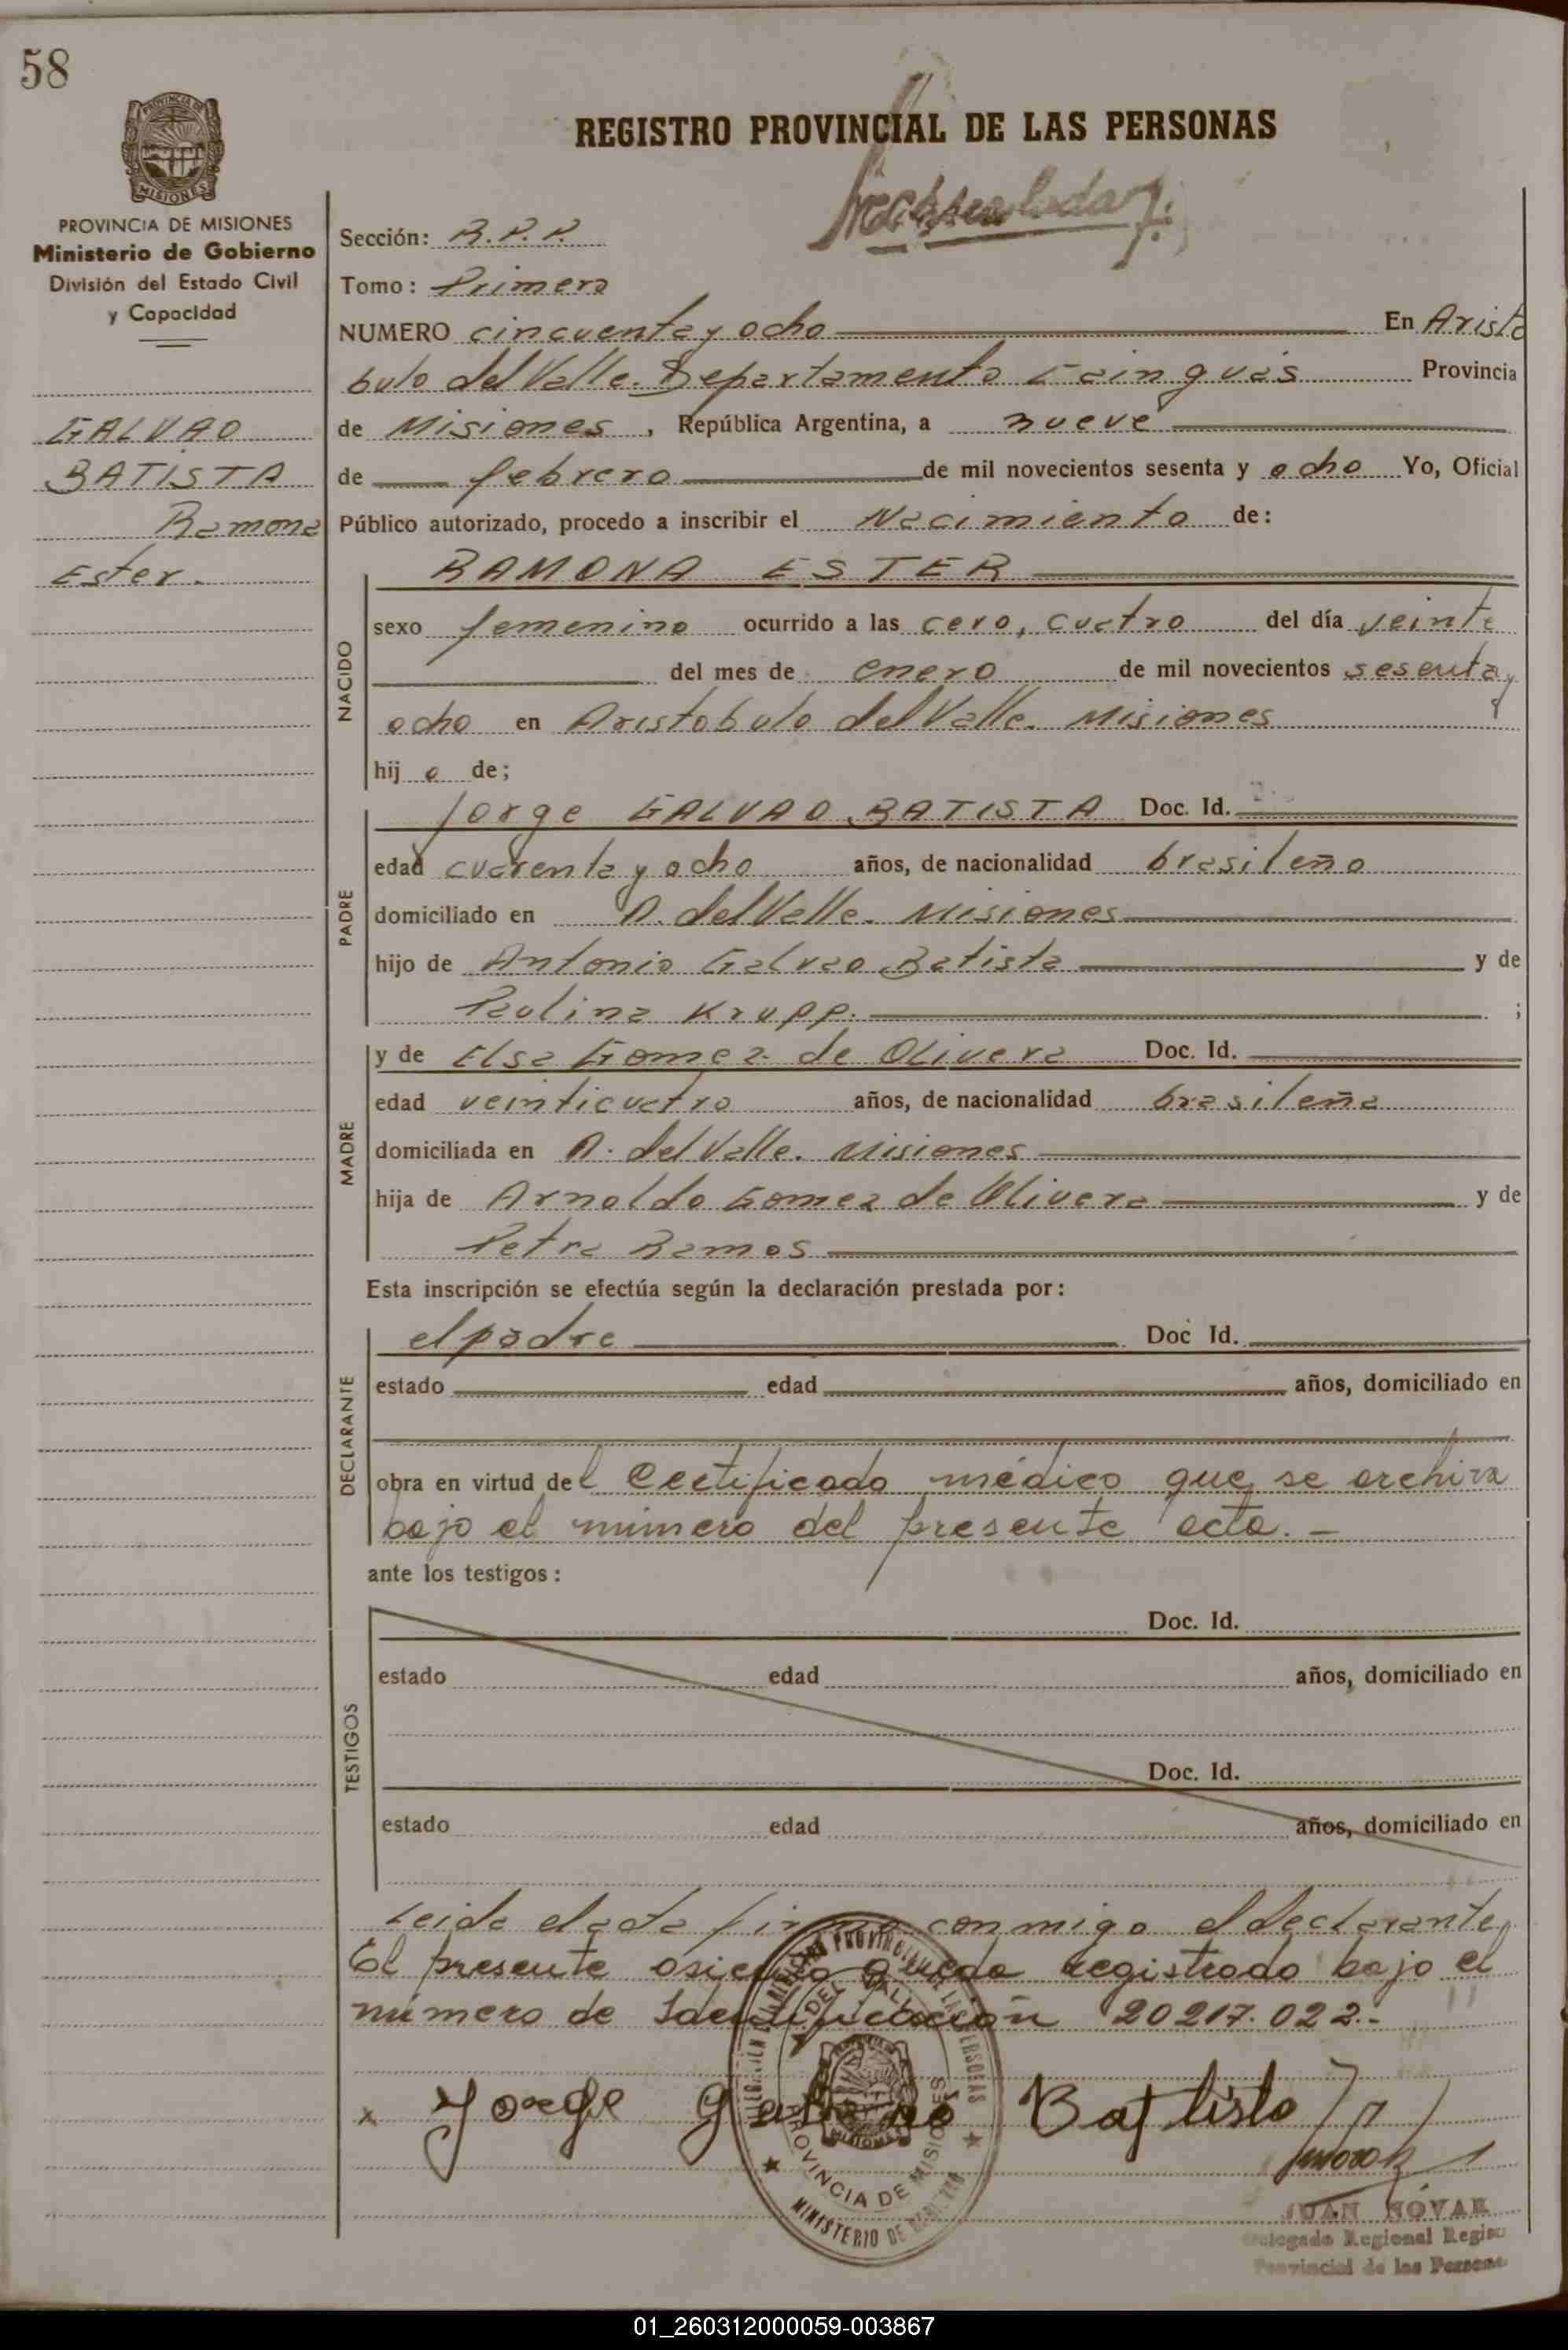 58
REGISTRO PROVINCIAL DE LAS PERSONAS
PROVINCIA DE
MISIONES
PROVINCIA DE MISIONES
Ministerio de Gobierno
División del Estado Civil
y Capacidad
GALVAO
BATISTA
Ramona
Ester.
Sección: R.P.P.
Tomo: Primero
NUMERO cincuenta y ocho En Aristo
bulo del Valle. Departamento Cainguás Provincia
de Misiones, República Argentina, a nueve
de febrero de mil novecientos sesenta y ocho Yo, Oficial
Público autorizado, procedo a inscribir el Nacimiento de:
NACIDO
RAMONA ESTER
sexo femenino ocurrido a las cero, cuatro del día veinte
del mes de enero de mil novecientos sesenta y
ocho en Aristobulo del Valle. Misiones
hij a de;
PADRE
Jorge GALVAO BATISTA Doc. Id.
edad cuarenta y ocho años, de nacionalidad brasileño
domiciliado en A. del Valle. Misiones
hijo de Antonio Galvao Batista y de
Paulina Krupp. ;
MADRE
y de Elsa Gomez de Olivera Doc. Id.
edad veinticuatro años, de nacionalidad brasileña
domiciliada en A. del Valle. Misiones
hija de Arnoldo Gomez de Olivera y de
Petra Ramos
Esta inscripción se efectúa según la declaración prestada por:
DECLARANTE
el padre Doc Id.
estado edad años, domiciliado en
obra en virtud del Certificado médico que se archiva
bajo el número del presente acta. -
ante los testigos:
TESTIGOS
Doc. Id.
estado edad años, domiciliado en
Doc. Id.
estado edad años, domiciliado en
Leida el acta firma conmigo el declarante,
El presente asiento queda registrado bajo el
número de Identificación 20217.022.-
x Jorge Batista
PROVINCIA DE MISIONES
MINISTERIO DE
JUAN NOVAK
Delegado Regional Regis
Provincial de las Persona
01_260312000059-003867